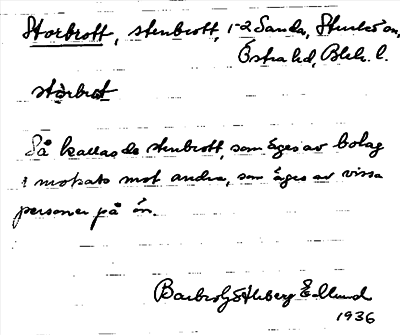 Storbrott, stenbrott, 1-2 Sanda, Sturkö sn,
Östra hd, Blek. l.
stòrbrot
Så kallas de stenbrott, som äges av bolag
i motsats mot andra, som äges av vissa
personer på ön.
Barbro Söderberg Edlund
1936